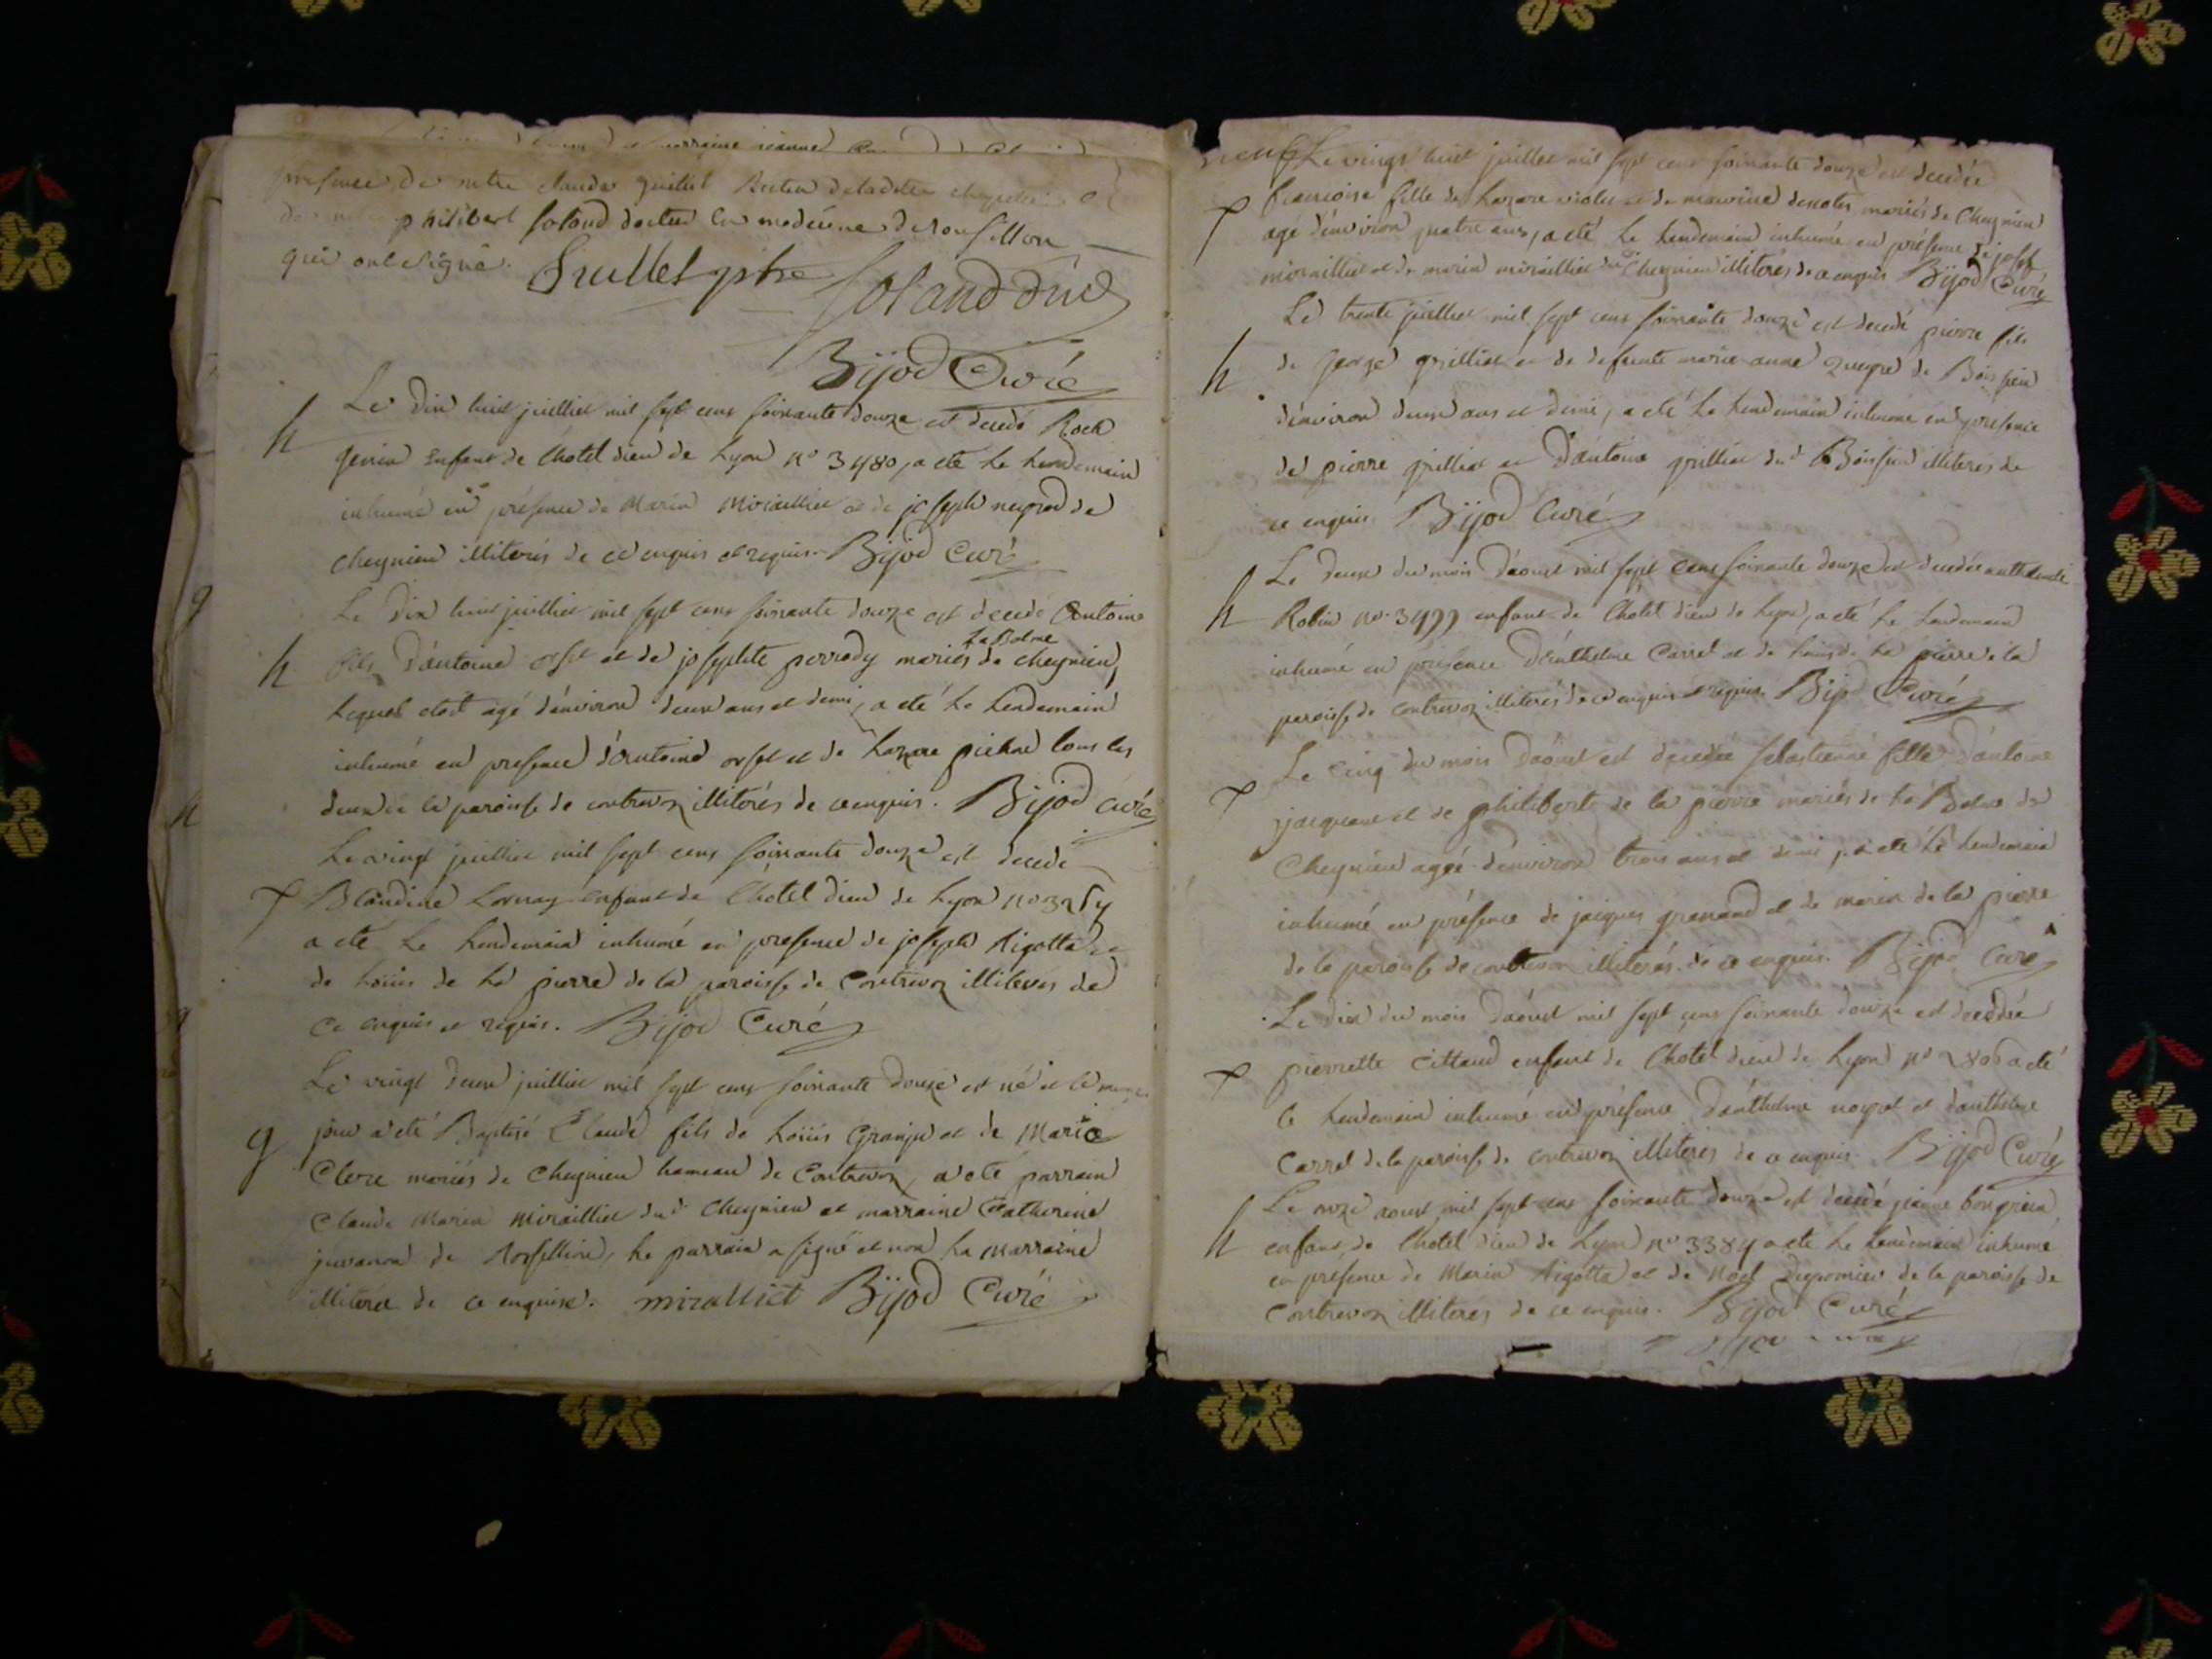 marraine jeanne
présence de mtre claude
philibert foland docteur en medecine de rousillon
qui ont signé. Guillet ptre foland dmed
Bijod Curé
h Le dix huit juilliet mil sept cens soixante douze est decedé Roch
genin enfant de l'hotel dieu de Lyon no 3480, a eté le lendemain
inhumé en présence de Marin Miraillier et de joseph neyrod de
cheynieu illiterés de ce enquis et requis. Bijod Curé
Le dix huit juilliet mil sept cens soixante douze est decedé Antoine
La Balme
h fils d'antoine orset et de josephte perrody mariés de cheynieu,
lequel etoit agé d'environ deux ans et demi, a eté le lendemain
inhumé en presence d'antoine orset et de lazare pichod tous les
deux de la paroisse de contrevoz illiterés de ce enquis. Bijod curé
Le vingt juilliet mil sept cens soixante douze est decedé
f Blandine Lornay enfant de l'hotel dieu de Lyon no
a eté le lendemain inhumé en presence de joseph Rigottaz et
de Loüis de la pierre de la paroisse de Contrevoz illiterés de
ce enquis et requis. Bijod Curé
Le vingt deux juilliet mil sept cens soixante douze est né et le meme
g jour a eté Baptisé Claude fils de Loüis Granju et de Marie
Clerc mariés de Cheynieu hameau de Contrevoz, a eté parrain
Claude Marin Miraillier dud Cheynieu et marraine Catherine
juvanon de Rossillion, le parrain a signé et non la Marraine
illiterée de ce enquise. miralliet Bijod Curé
Le vingt huit juillet mil sept cens soixante douze est decedée
f francoise fille de Lazare violet et de mauricie descotes mariés de Cheynieu
agé d'environ quatre ans, a eté le lendemain inhumé en présence de josef
miraillier et de marin miraillier dud Cheynieu illiterés de ce enquis Bijod Curé
Le trente juilliet mil sept cens soixante douze est decedé pierre fils
h de george grilliet et de defunte marie anne de Boissieu
d'environ deux ans et demi, a eté le lendemain inhumé en presence
de pierre grilliet et d'antoine grilliet dud Boissieu illiterés de
ce enquis Bijod Curé
Le deux du mois d'aoust mil sept cens soixante douze est decedé anthelme
h Robin no 3499 enfant de l'hôtel dieu de Lyon, a eté le lendemain
inhumé en présence d'anthelme Carrel et de Louis de la pierre de la
paroisse de contrevoz illiterés de ce enquis et requis. Bijod Curé
Le cinq du mois d'aoust est decedée sebastienne fille d'antoine
f jacquand et de philiberte de la pierre mariés de la Balme de
Cheynieu agée d'environ trois ans et demi, a eté le lendemain
inhumé en présence de jacques granand et de marin de la pierre
de la paroisse de contrevoz illiterés de ce enquis. Bijod Curé
Le dix du mois d'aoust mil sept cens soixante douze est decedée
f pierrette Cittaud enfant de l'hotel dieu de Lyon no 2806 a eté
le lendemain inhumé en présence d'anthelme neyret et d'anthelme
Carrel de la paroisse de contrevoz illiterés de ce enquis. Bijod Curé
Le onze aoust mil sept cens soixante douze est decedé pierre bongrain
h enfant de l'hôtel dieu de Lyon no 3384 a eté le lendemain inhumé
en présence de Marin Rigottaz et de Noël Depomier de la paroisse de
Contrevoz illiterés de ce enquis. Bijod Curé